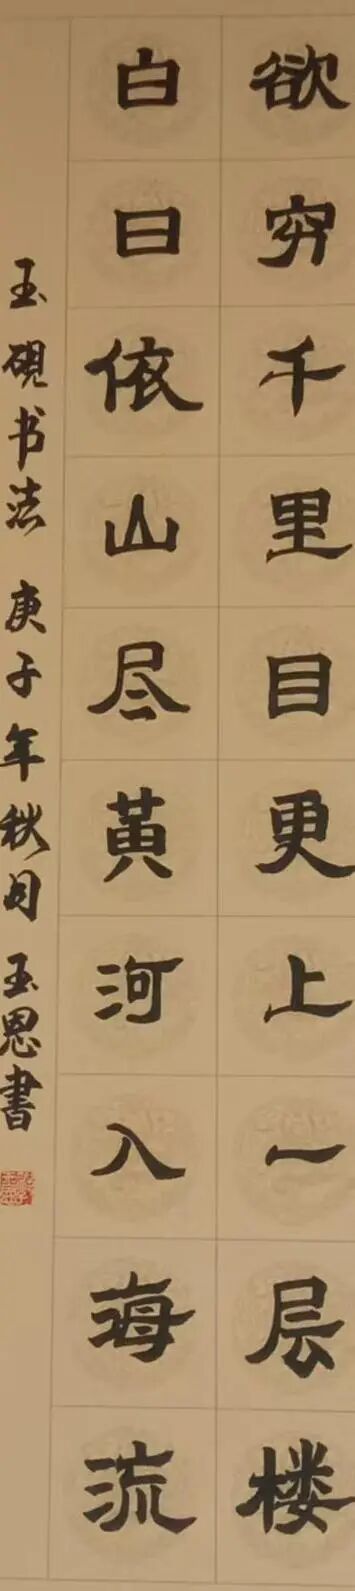 欲穷千里目更上一层楼
白日依山尽黄河入海流
玉砚书法 庚子年秋月 玉恩書